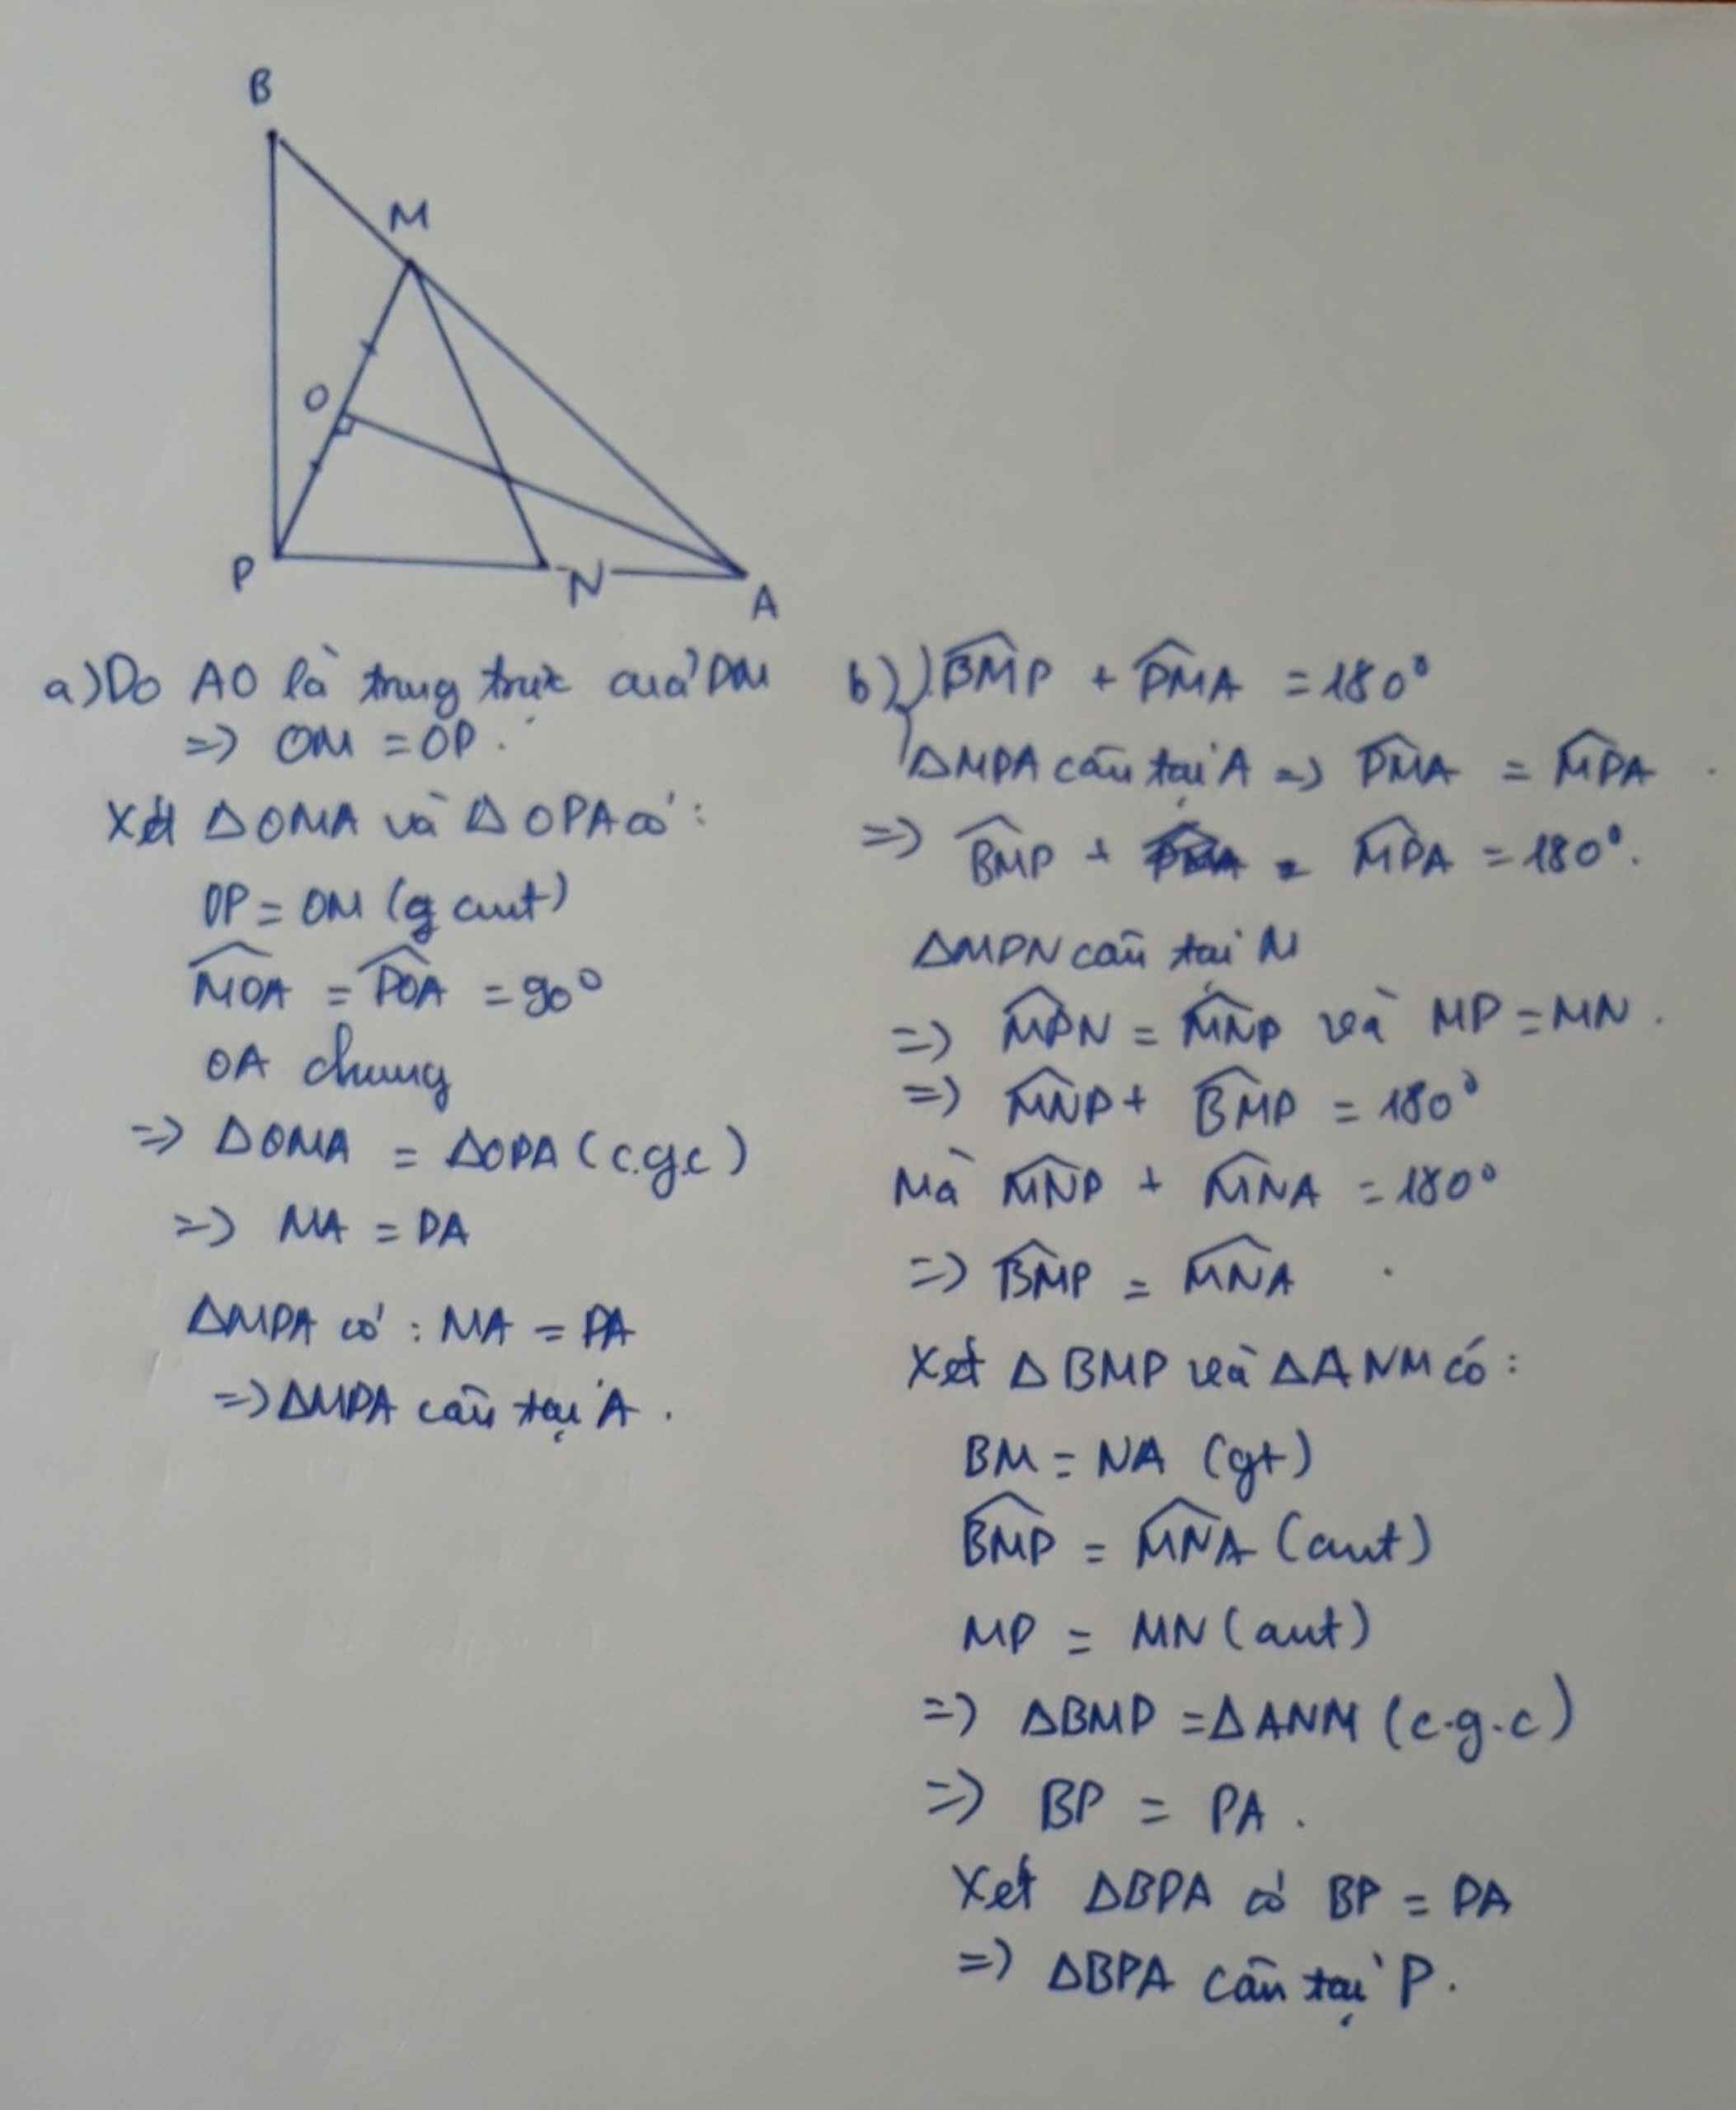 B
M
O
P
N
A
a) Do AO là trung trực của PM
=> OM = OP.
Xét ΔOMA và ΔOPA có:
OP = OM (g cmt)
\widehat{MOA} = \widehat{POA} = 90°
OA chung
=> ΔOMA = ΔOPA (c.g.c)
=> MA = PA
ΔMPA có : MA = PA
=> ΔMPA cân tại A.
b) \widehat{BMP} + \widehat{PMA} = 180°
ΔMPA cân tại A => \widehat{PMA} = \widehat{MPA}
=> \widehat{BMP} + \widehat{MPA} = 180°.
ΔMPN cân tại M
=> \widehat{MPN} = \widehat{MNP} và MP = MN.
=> \widehat{MNP} + \widehat{BMP} = 180°
Mà \widehat{MNP} + \widehat{MNA} = 180°
=> \widehat{BMP} = \widehat{MNA}
Xét ΔBMP và ΔANM có:
BM = NA (gt)
\widehat{BMP} = \widehat{MNA} (cmt)
MP = MN (cmt)
=> ΔBMP = ΔANM (c.g.c)
=> BP = PA.
Xét ΔBPA có BP = PA
=> ΔBPA cân tại P.